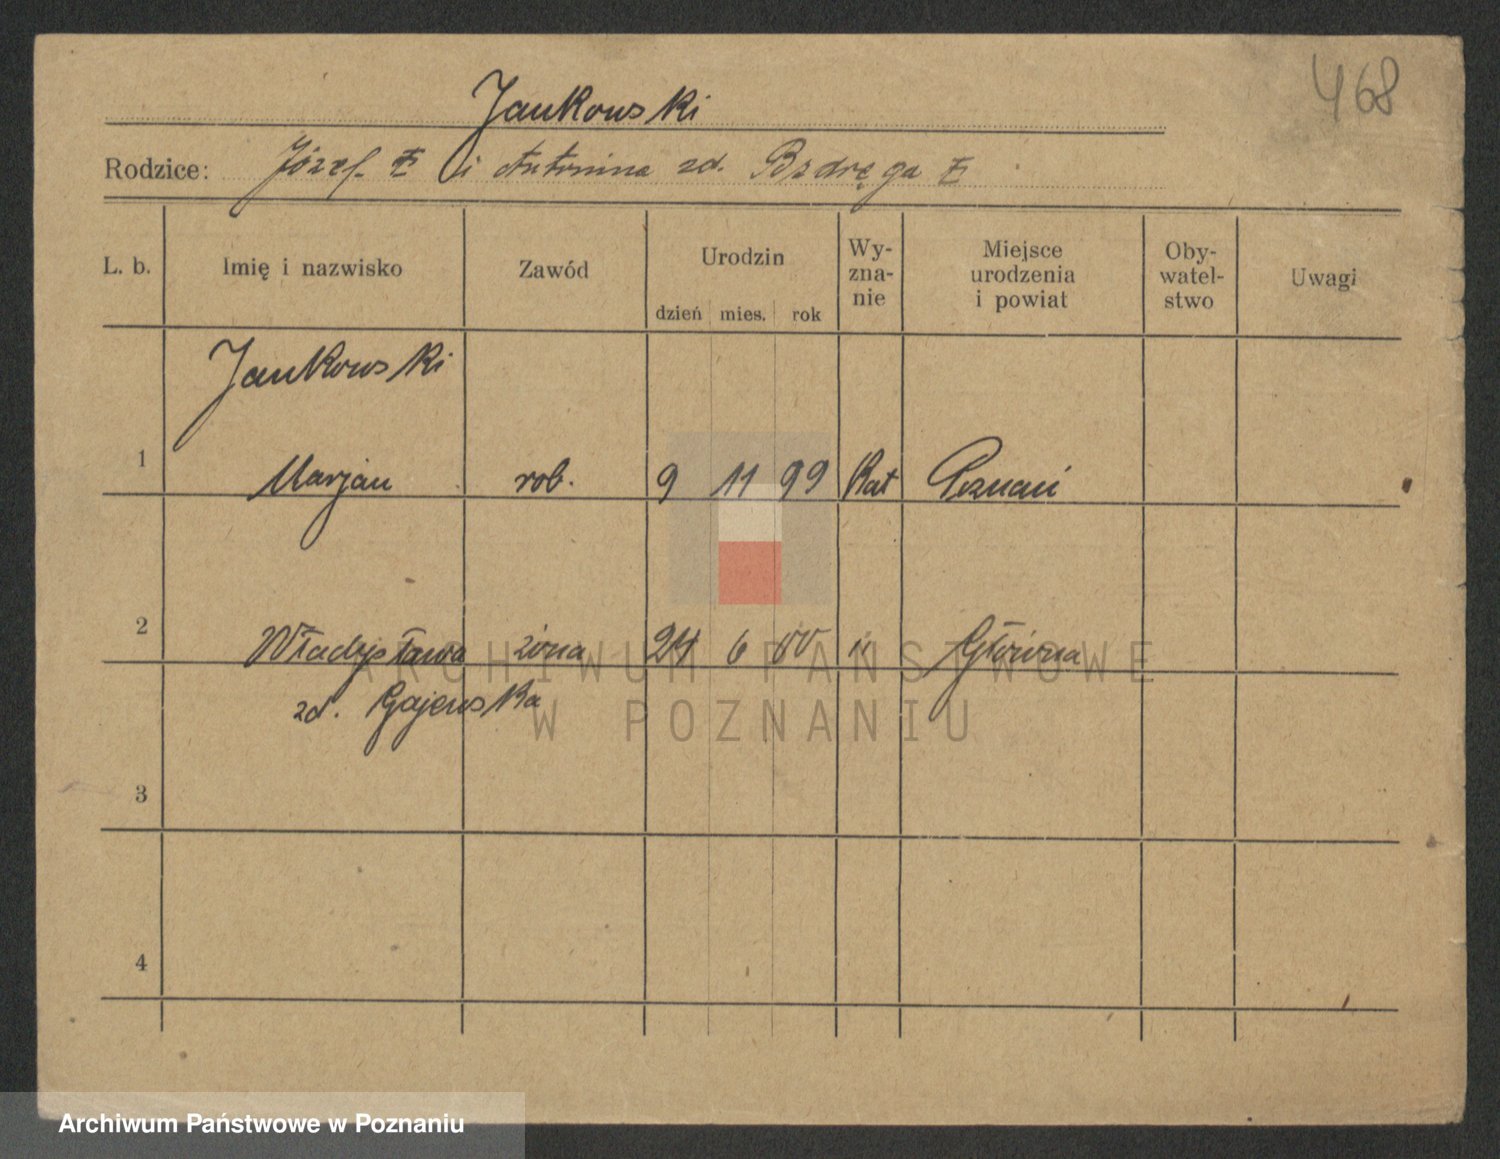 468
Jankowski
Rodzice: Józef i Antonina zd. Bzdręga
L. b. Imię i nazwisko Zawód Urodzin dzień mies. rok Wy-zna-nie Miejsce urodzenia i powiat Oby-watel-stwo Uwagi
Jankowski
1 Marjan rob. 9 11 99 Kat Poznań
2 Władysława żona 24 6 00 " Główna
zd. Gajewska
3
4
ARCHIWUM PAŃSTWOWE
W POZNANIU
Archiwum Państwowe w Poznaniu